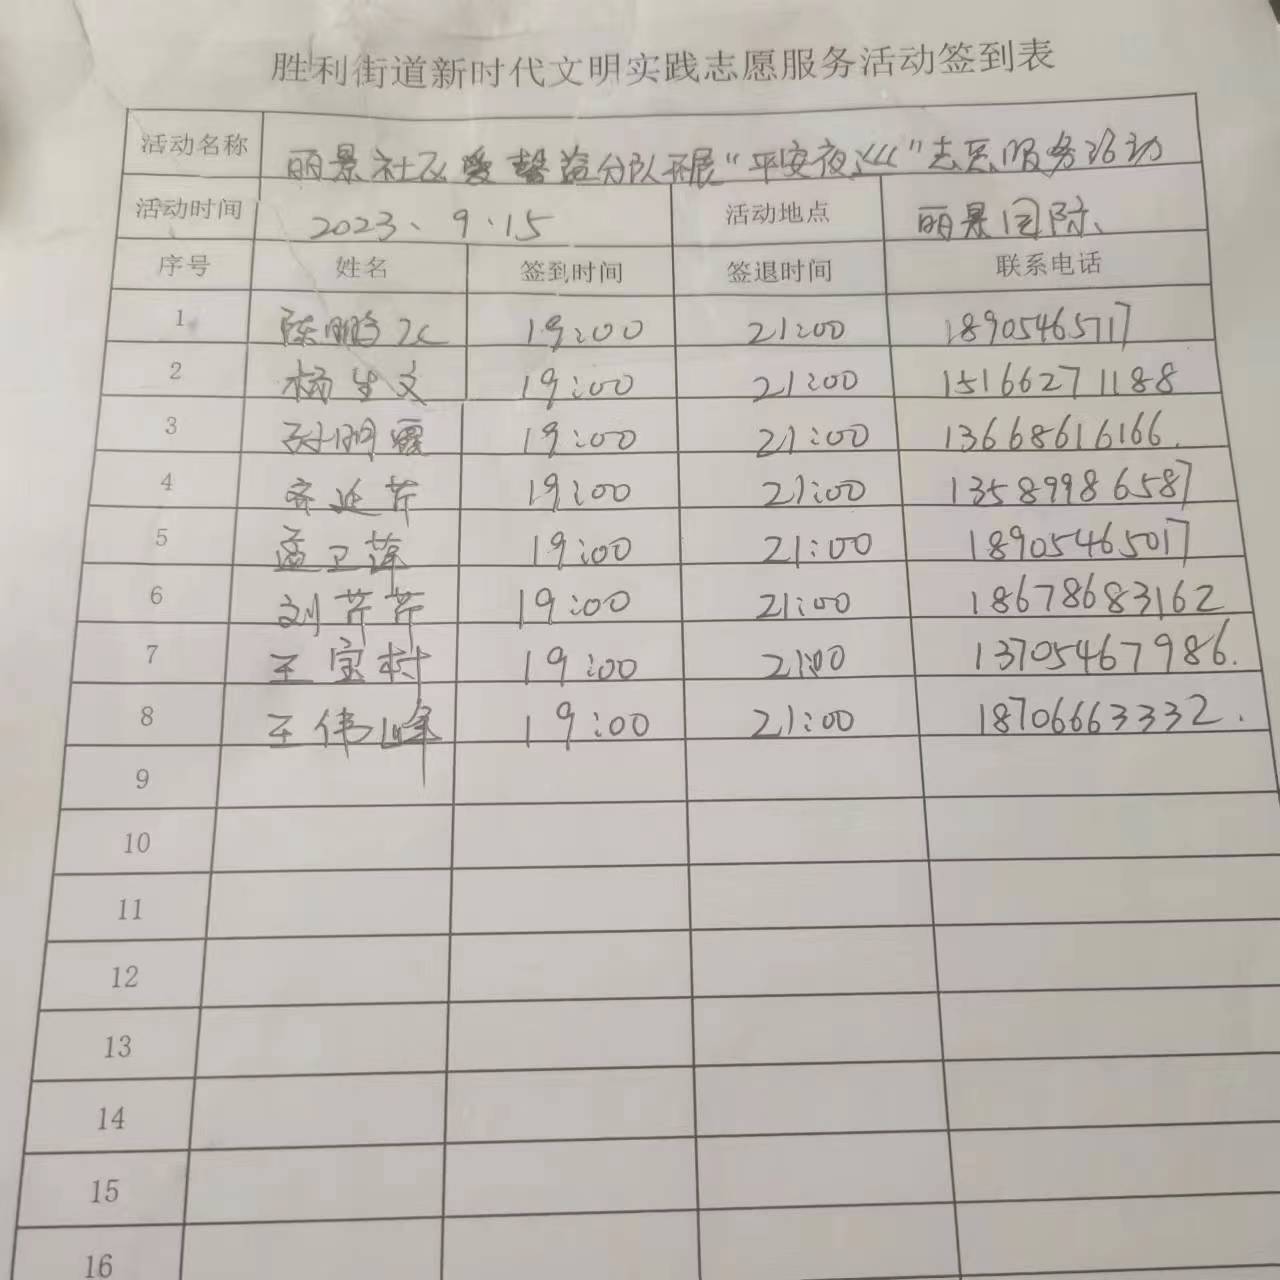 胜利街道新时代文明实践志愿服务活动签到表
活动名称 丽景社区爱馨益分队开展“平安夜巡”志愿服务活动
活动时间 2023、9.15 活动地点 丽景国际、
序号 姓名 签到时间 签退时间 联系电话
1 陈鹏飞 19:00 21:00 18905465717
2 杨生文 19:00 21:00 15166271188
3 孙明霞 19:00 21:00 13668616166.
4 齐延芹 19:00 21:00 13589986587
5 孟卫萍 19:00 21:00 18905465017
6 刘芹芹 19:00 21:00 18678683162
7 王宝树 19:00 21:00 13705467986.
8 王伟峰 19:00 21:00 18706663332.
9
10
11
12
13
14
15
16